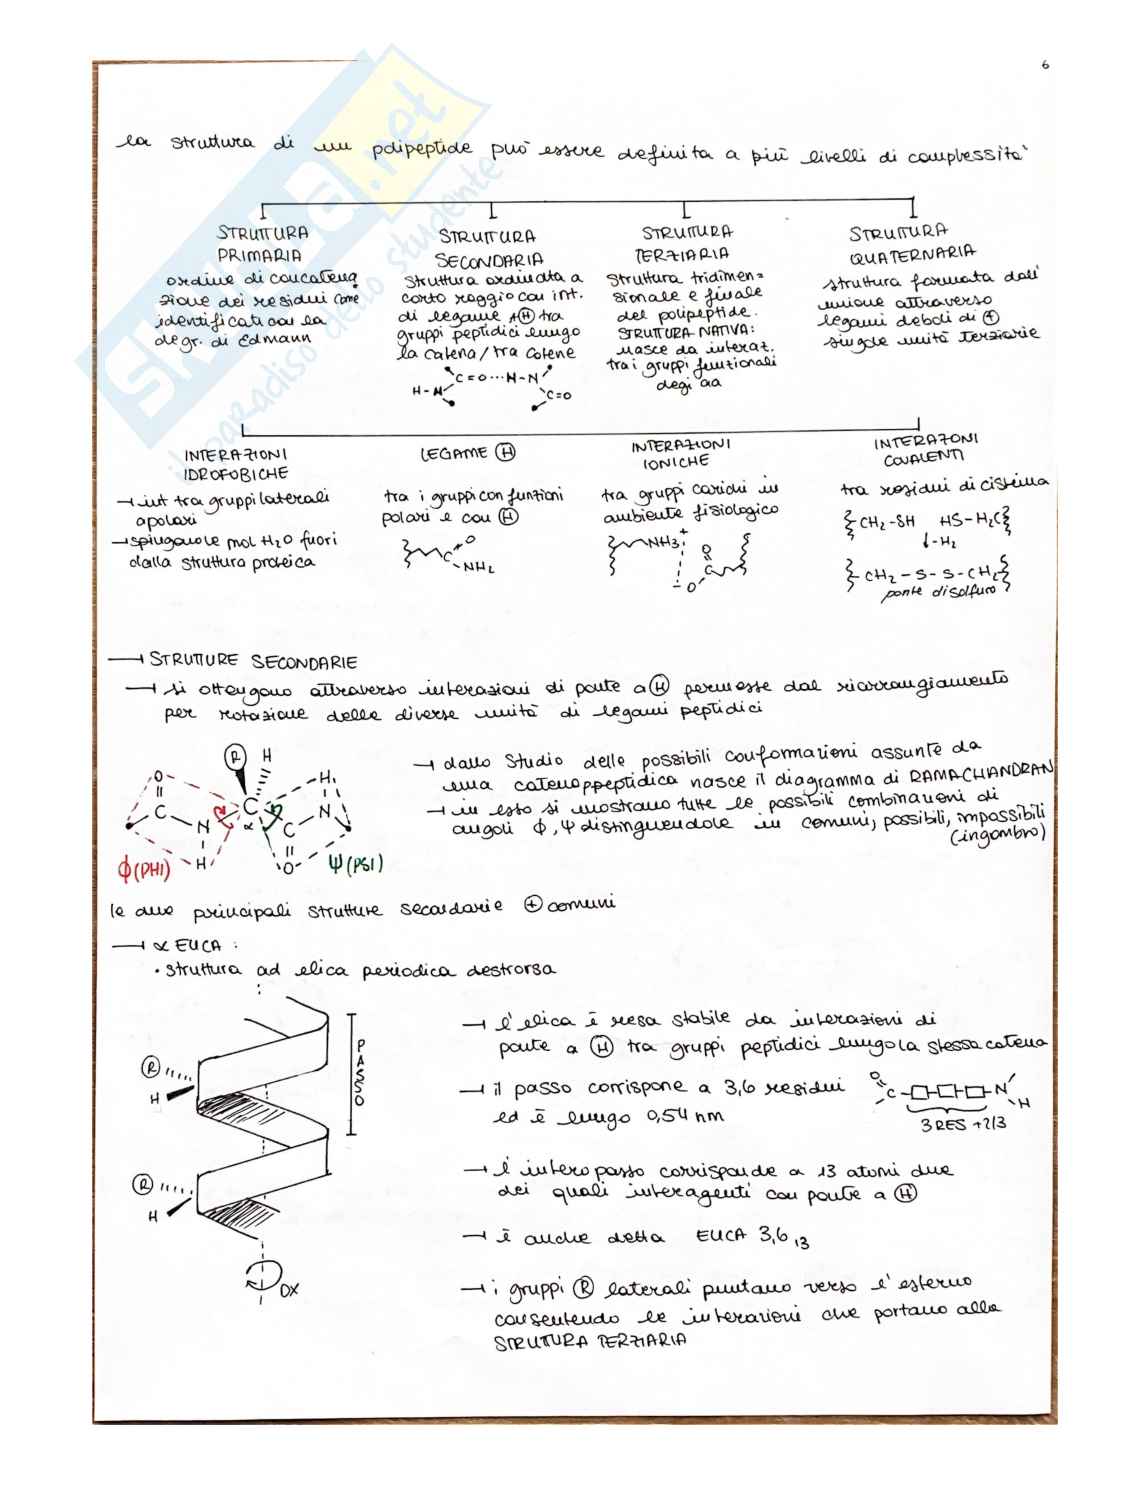 6
la struttura di un polipeptide può essere definita a più livelli di complessità
STRUTTURA
PRIMARIA
ordine di concatena
zione dei residui come
identificati con la
degr. di Edmann
STRUTTURA
SECONDARIA
struttura ordinata a
corto raggio con int.
di legame a H tra
gruppi peptidici lungo
la catena/tra catene
C=O···H-N
H-N
C=O
STRUTTURA
TERZIARIA
Struttura tridimen=
sionale e finale
del polipeptide.
STRUTTURA NATIVA:
nasce da interaz.
tra i gruppi funzionali
degi aa
STRUTTURA
QUATERNARIA
struttura formata dall'
unione attraverso
legami deboli di +
singole unità terziarie
INTERAZIONI
IDROFOBICHE
→ int tra gruppi laterali
apolari
→ spingono le mol H2O fuori
dalla struttura proteica
LEGAME H
tra i gruppi con funzioni
polari e con H
C
O
NH2
INTERAZIONI
IONICHE
tra gruppi carichi in
ambiente fisiologico
NH3+
O
C
-O
INTERAZONI
COVALENTI
tra residui di cisteina
CH2-SH HS-H2C
↓-H2
CH2-S-S-CH2
ponte disolfuro
→ STRUTTURE SECONDARIE
→ si ottengono attraverso interazioni di ponte a H permesse dal riarrangiamento
per rotazione delle diverse unità di legami peptidici
R H
O C N H
C α
H N C O
ϕ(PHI)
ψ(PSI)
→ dallo studio delle possibili conformazioni assunte da
una catena peptidica nasce il diagramma di RAMACHANDRAN
→ in esso si mostrano tutte le possibili combinazioni di
angoli ϕ, ψ distinguendole in comuni, possibili, impossibili
(ingombro)
le due principali strutture secondarie + comuni
→ α ELICA :
• struttura ad elica periodica destrorsa
R
H
R
H
PASSO
DX
→ l'elica è resa stabile da interazioni di
ponte a H tra gruppi peptidici lungo la stessa catena
→ il passo corrispone a 3,6 residui
ed è lungo 0,54 nm
O
C
N
H
3 RES +2/3
→ l'intero passo corrisponde a 13 atomi due
dei quali interagenti con ponte a H
→ è anche detta ELICA 3,6 13
→ i gruppi R laterali puntano verso l'esterno
consentendo le interazioni che portano alla
STRUTTURA TERZIARIA
SKUOLA.net
il paradiso dello studente